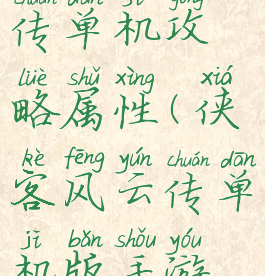 chuán dān jī gōng
传单机攻
lüè shǔ xìng xiá
略属性(侠
kè fēng yún chuán dān
客风云传单
jī bǎn shǒu yóu
机版手游